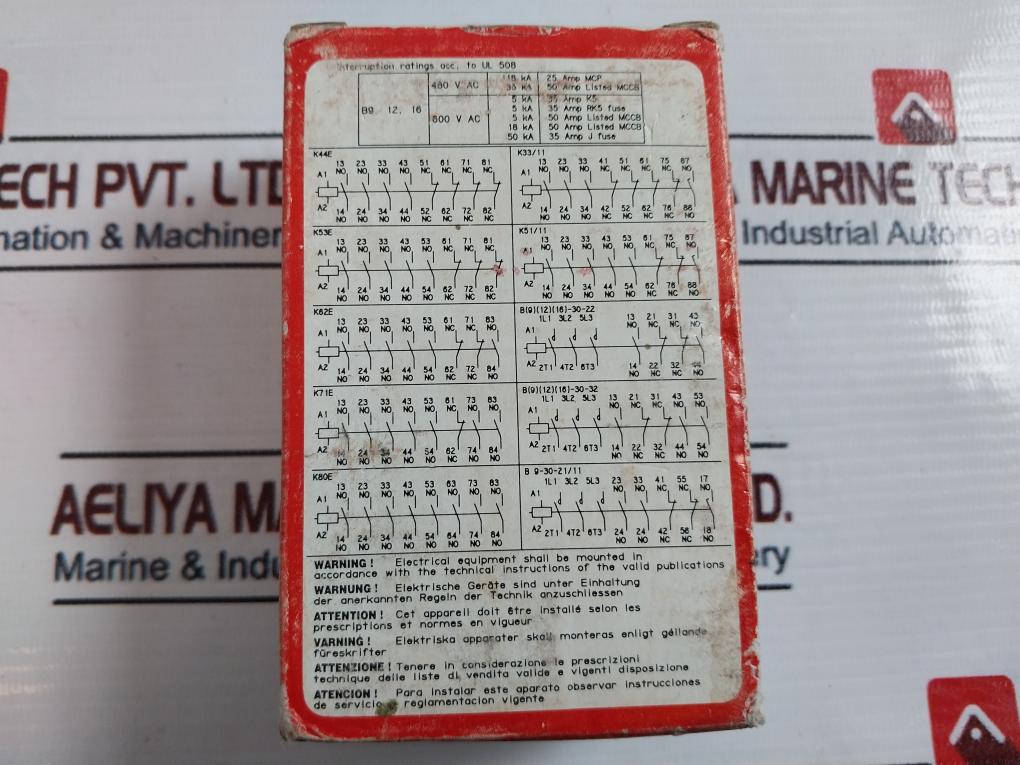 Interruption ratings acc. to UL 508
B9, 12, 16
480 V AC
18 kA 25 Amp MCP
35 kA 50 Amp Listed MCCB
600 V AC
5 kA 35 Amp K5
5 kA 35 Amp RK5 fuse
5 kA 50 Amp Listed MCCB
18 kA 50 Amp Listed MCCB
50 kA 35 Amp J fuse
K44E
13 23 33 43 51 61 71 81
NO NO NO NO NC NC NC NC
A1
A2
14 24 34 44 52 62 72 82
NO NO NO NO NC NC NC NC
K33/11
13 23 33 41 51 61 75 87
NO NO NO NC NC NC NC NO
A1
A2
14 24 34 42 52 62 76 88
NO NO NO NC NC NC NC NO
K53E
13 23 33 43 53 61 71 81
NO NO NO NO NO NC NC NC
A1
A2
14 24 34 44 54 62 72 82
NO NO NO NO NO NC NC NC
K51/11
13 23 33 43 53 61 75 87
NO NO NO NO NO NC NC NO
A1
A2
14 24 34 44 54 62 76 88
NO NO NO NO NO NC NC NO
K62E
13 23 33 43 53 61 71 83
NO NO NO NO NO NC NC NO
A1
A2
14 24 34 44 54 62 72 84
NO NO NO NO NO NC NC NO
B(9)(12)(16)-30-22
1L1 3L2 5L3 13 21 31 43
NO NC NC NO
A1
A2
2T1 4T2 6T3 14 22 32 44
NO NC NC NO
K71E
13 23 33 43 53 61 73 83
NO NO NO NO NO NC NO NO
A1
A2
14 24 34 44 54 62 74 84
NO NO NO NO NO NC NO NO
B(9)(12)(16)-30-32
1L1 3L2 5L3 13 21 31 43 53
NO NC NC NO NO
A1
A2
2T1 4T2 6T3 14 22 32 44 54
NO NC NC NO NO
K80E
13 23 33 43 53 63 73 83
NO NO NO NO NO NO NO NO
A1
A2
14 24 34 44 54 64 74 84
NO NO NO NO NO NO NO NO
B 9-30-21/11
1L1 3L2 5L3 23 33 41 55 17
NO NO NC NC NO
A1
A2
2T1 4T2 6T3 24 24 42 56 18
NO NO NC NC NO
WARNING! Electrical equipment shall be mounted in
accordance with the technical instructions of the valid publications
WARNUNG! Elektrische Geräte sind unter Einhaltung
der anerkannten Regeln der Technik anzuschliessen
ATTENTION! Cet appareil doit être installé selon les
prescriptions et normes en vigueur
VARNING! Elektriska apparater skall monteras enligt gällande
füreskrifter
ATTENZIONE! Tenere in considerazione le prescrizioni
technique delle liste di vendita valide e vigenti disposizione
ATENCION! Para instalar este aparato observar instrucciones
de servicio reglamentacion vigente
TECH PVT. LTD
MARINE TECH
& Machiner
Industrial Automati
AELIYA MA
D.
Marine & Indu
ery